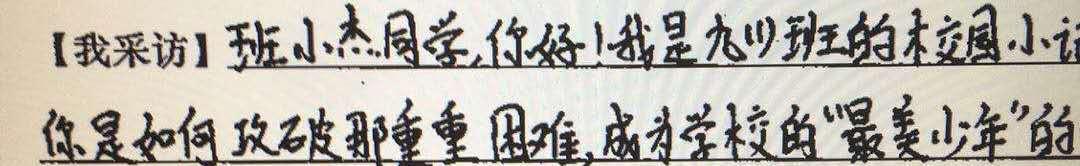 【我采访】班小杰同学,你好!我是九(1)班的校园小
你是如何攻破那重重困难,成为学校的“最美少年”的